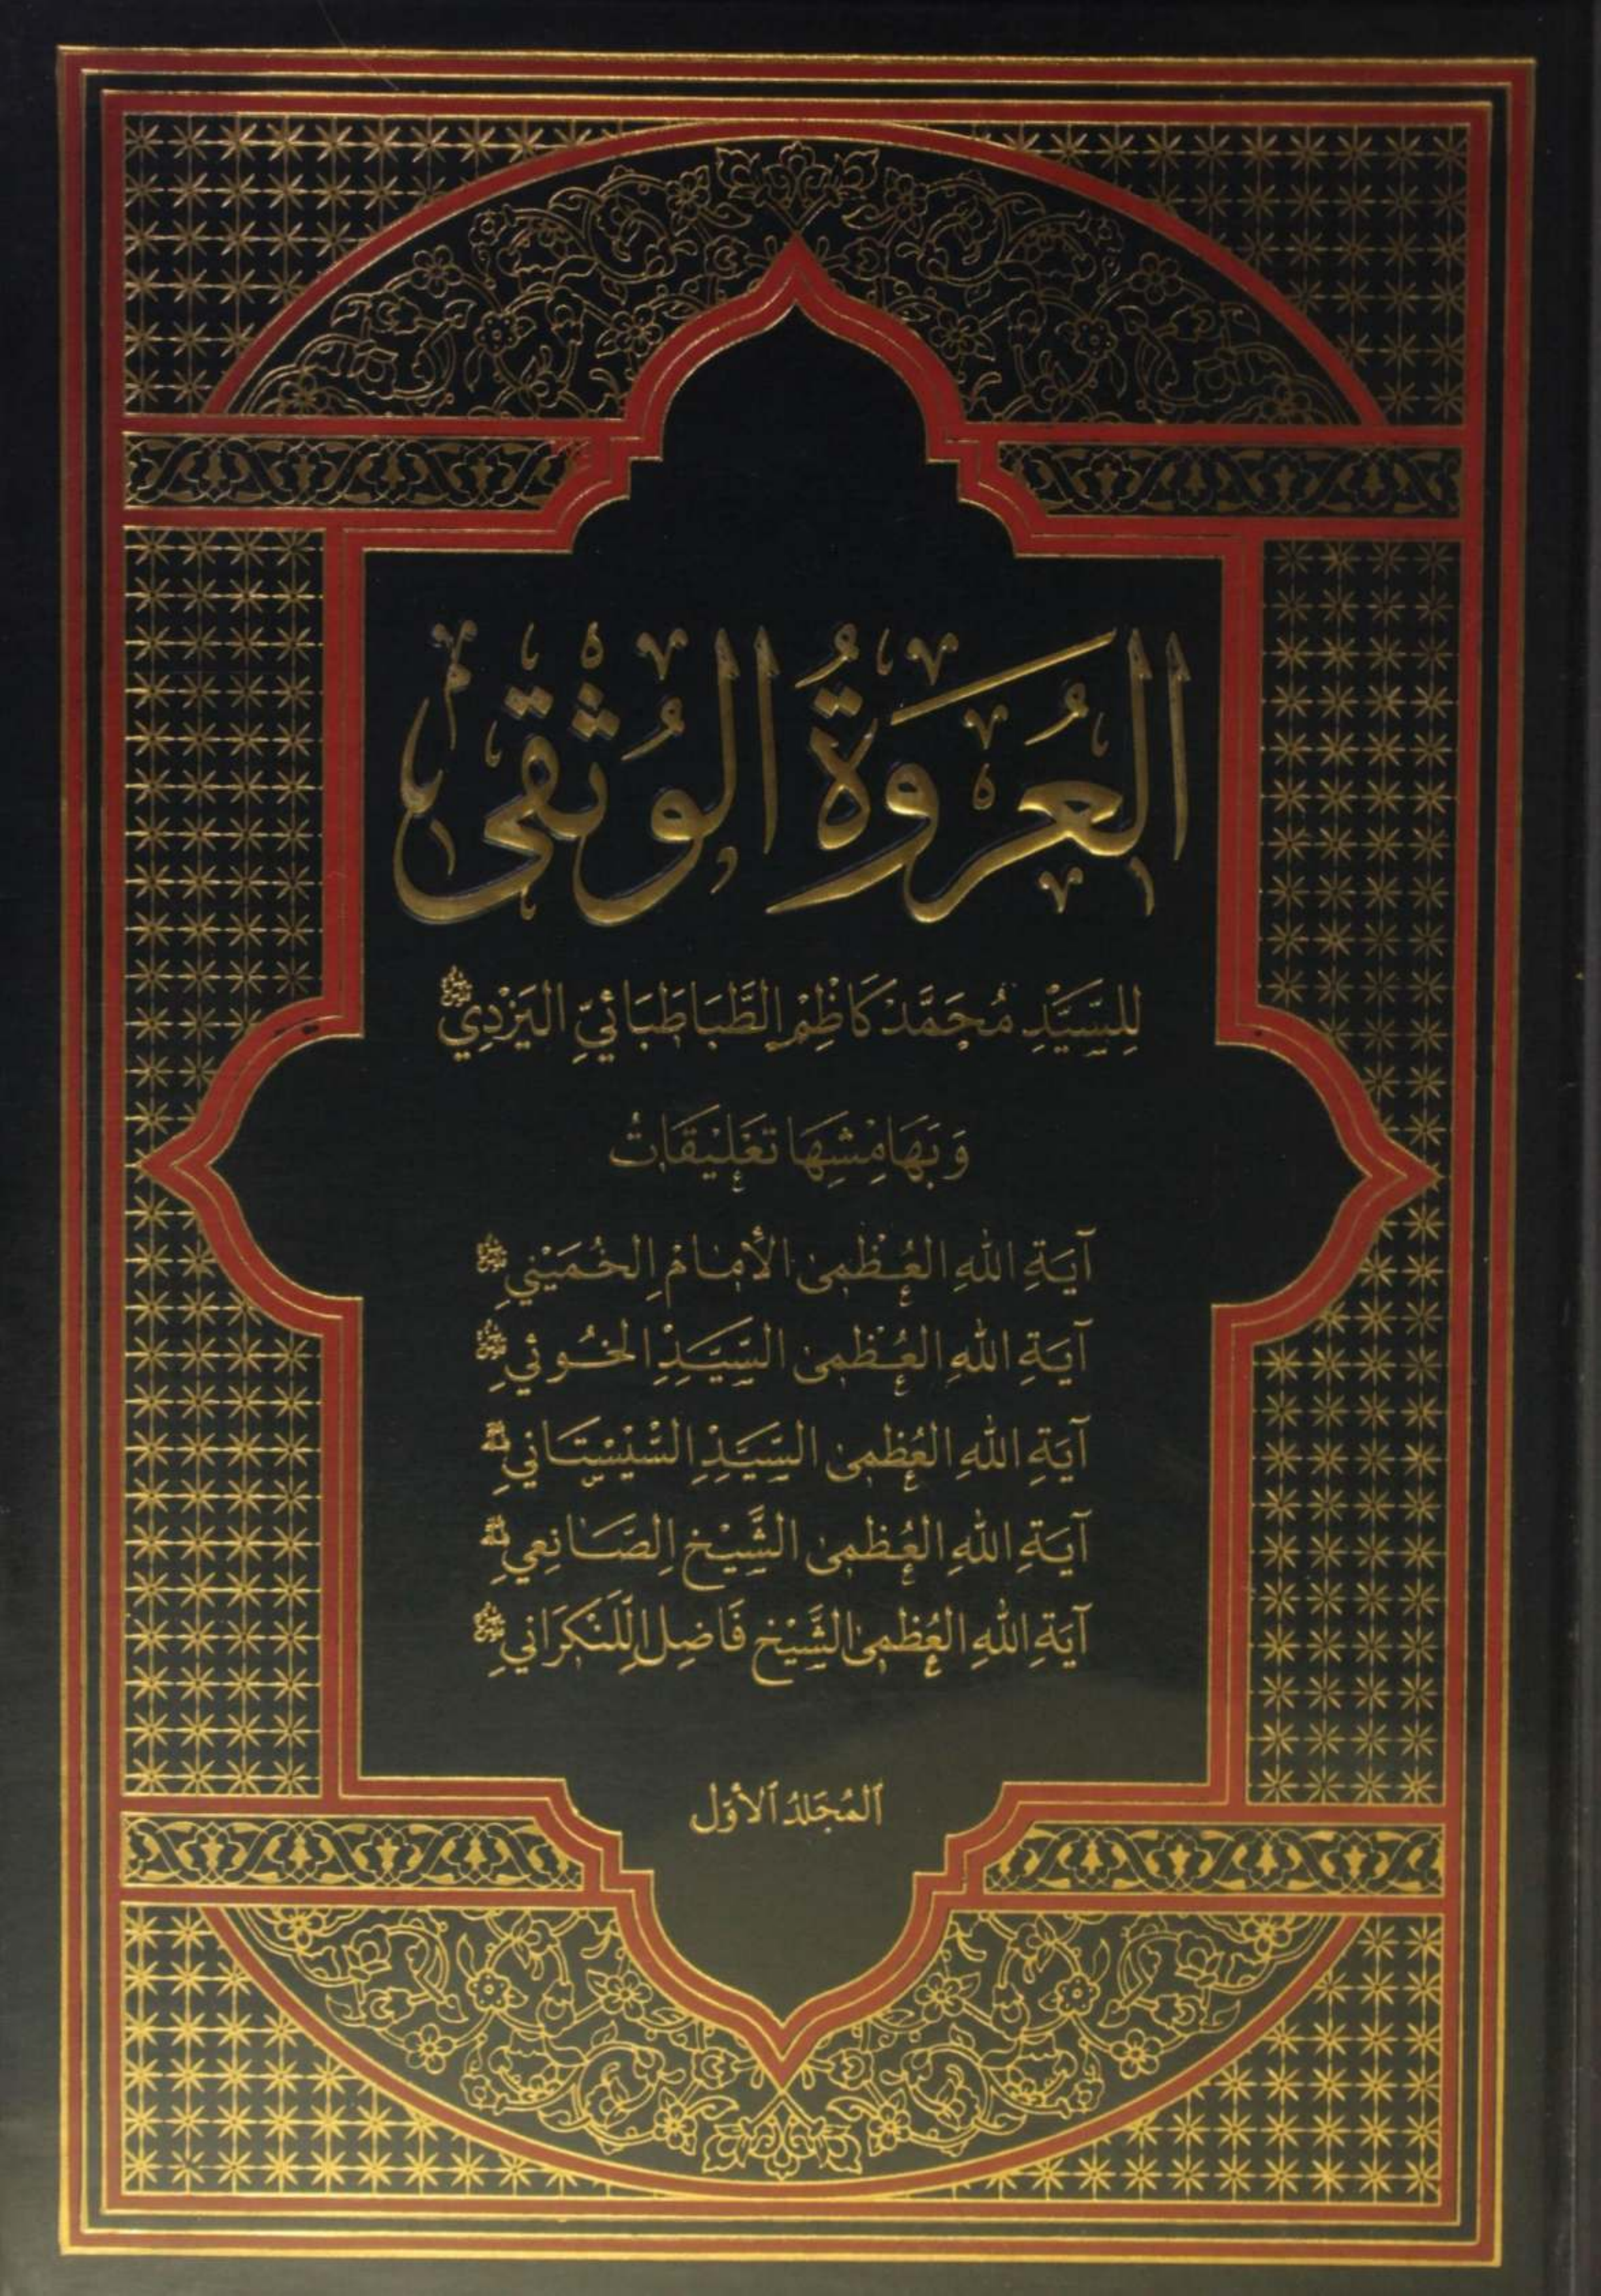 العُروَةُ الوُثقى
لِلسَّيِّدِ مُحَمَّد كَاظِمِ الطَّبَاطَبَائِيِّ اليَزْدِيِّ
وَبِهَامِشِهَا تَعْلِيقَاتُ
آيَةِ اللهِ العُظْمى الأمَامِ الخُمَيْنِي
آيَةِ اللهِ العُظْمى السَّيِّدِ الخُوئي
آيَةِ اللهِ العُظْمى السَّيِّدِ السِّيْسْتَانِي
آيَةِ اللهِ العُظْمى الشَّيْخِ الصَّانِعِي
آيَةِ اللهِ العُظْمى الشَّيْخِ فَاضِلِ اللَّنْكَرَانِي
ٱلمُجَلدُ ٱلأوّل